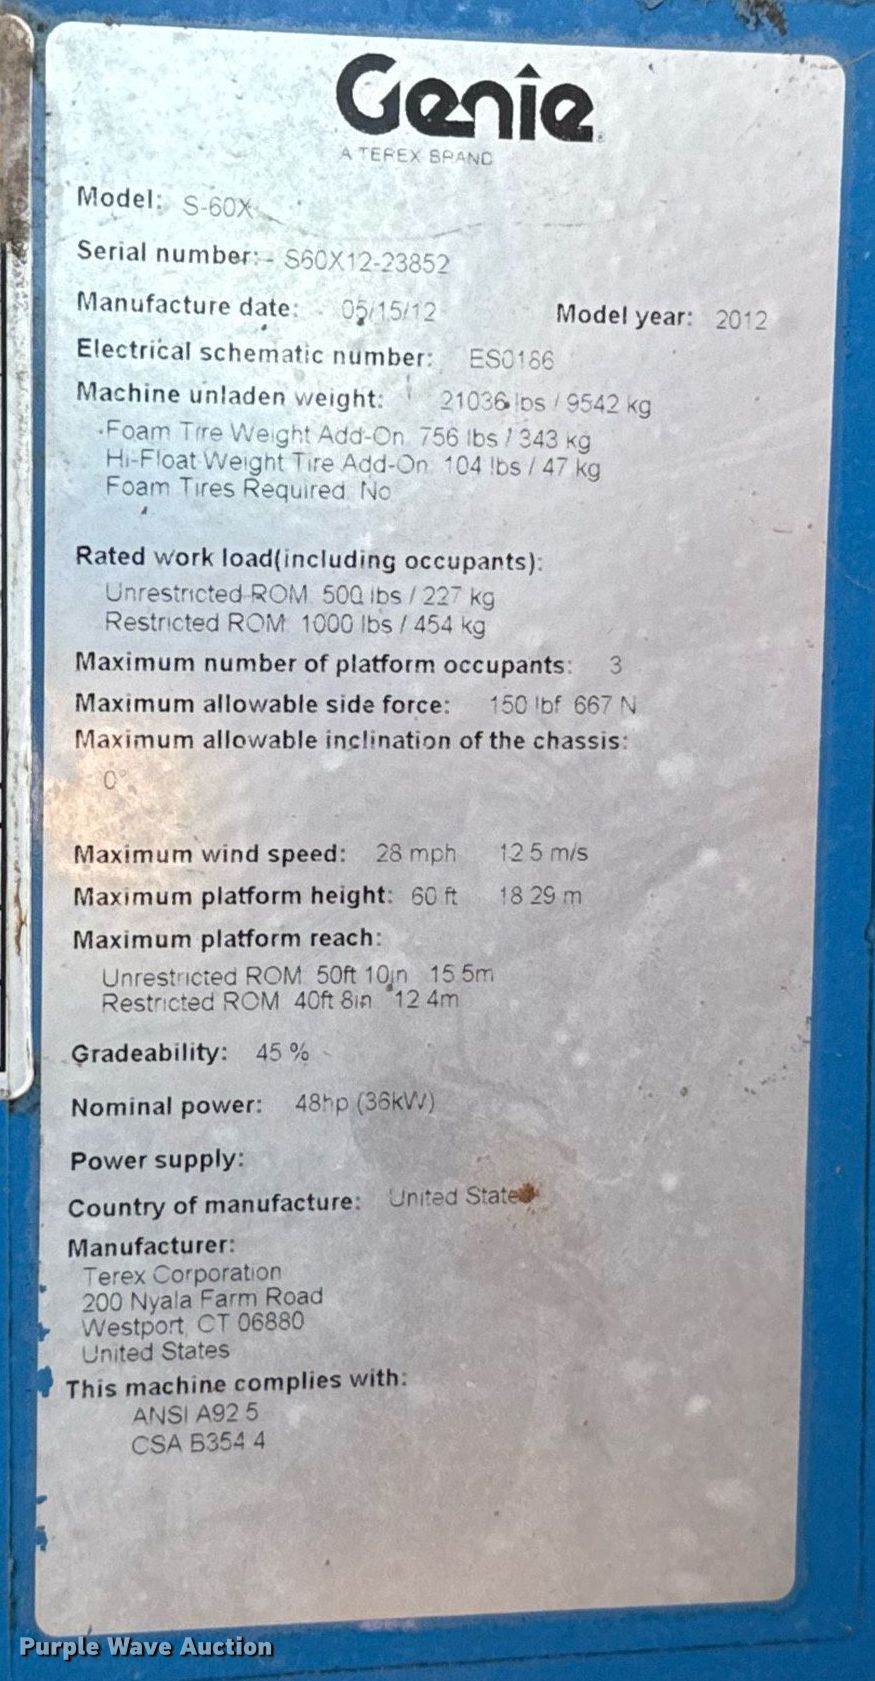 Genie
A TEREX BRAND
Model: S-60X
Serial number: S60X12-23852
Manufacture date: 05/15/12 Model year: 2012
Electrical schematic number: ES0186
Machine unladen weight: 21036 lbs / 9542 kg
Foam Tire Weight Add-On 756 lbs / 343 kg
Hi-Float Weight Tire Add-On 104 lbs / 47 kg
Foam Tires Required No
Rated work load(including occupants):
Unrestricted ROM 500 lbs / 227 kg
Restricted ROM 1000 lbs / 454 kg
Maximum number of platform occupants: 3
Maximum allowable side force: 150 lbf 667 N
Maximum allowable inclination of the chassis:
0°
Maximum wind speed: 28 mph 12.5 m/s
Maximum platform height: 60 ft 18.29 m
Maximum platform reach:
Unrestricted ROM 50ft 10in 15.5m
Restricted ROM 40ft 8in 12.4m
Gradeability: 45 %
Nominal power: 48hp (36kW)
Power supply:
Country of manufacture: United States
Manufacturer:
Terex Corporation
200 Nyala Farm Road
Westport, CT 06880
United States
This machine complies with:
ANSI A92.5
CSA B354.4
Purple Wave Auction